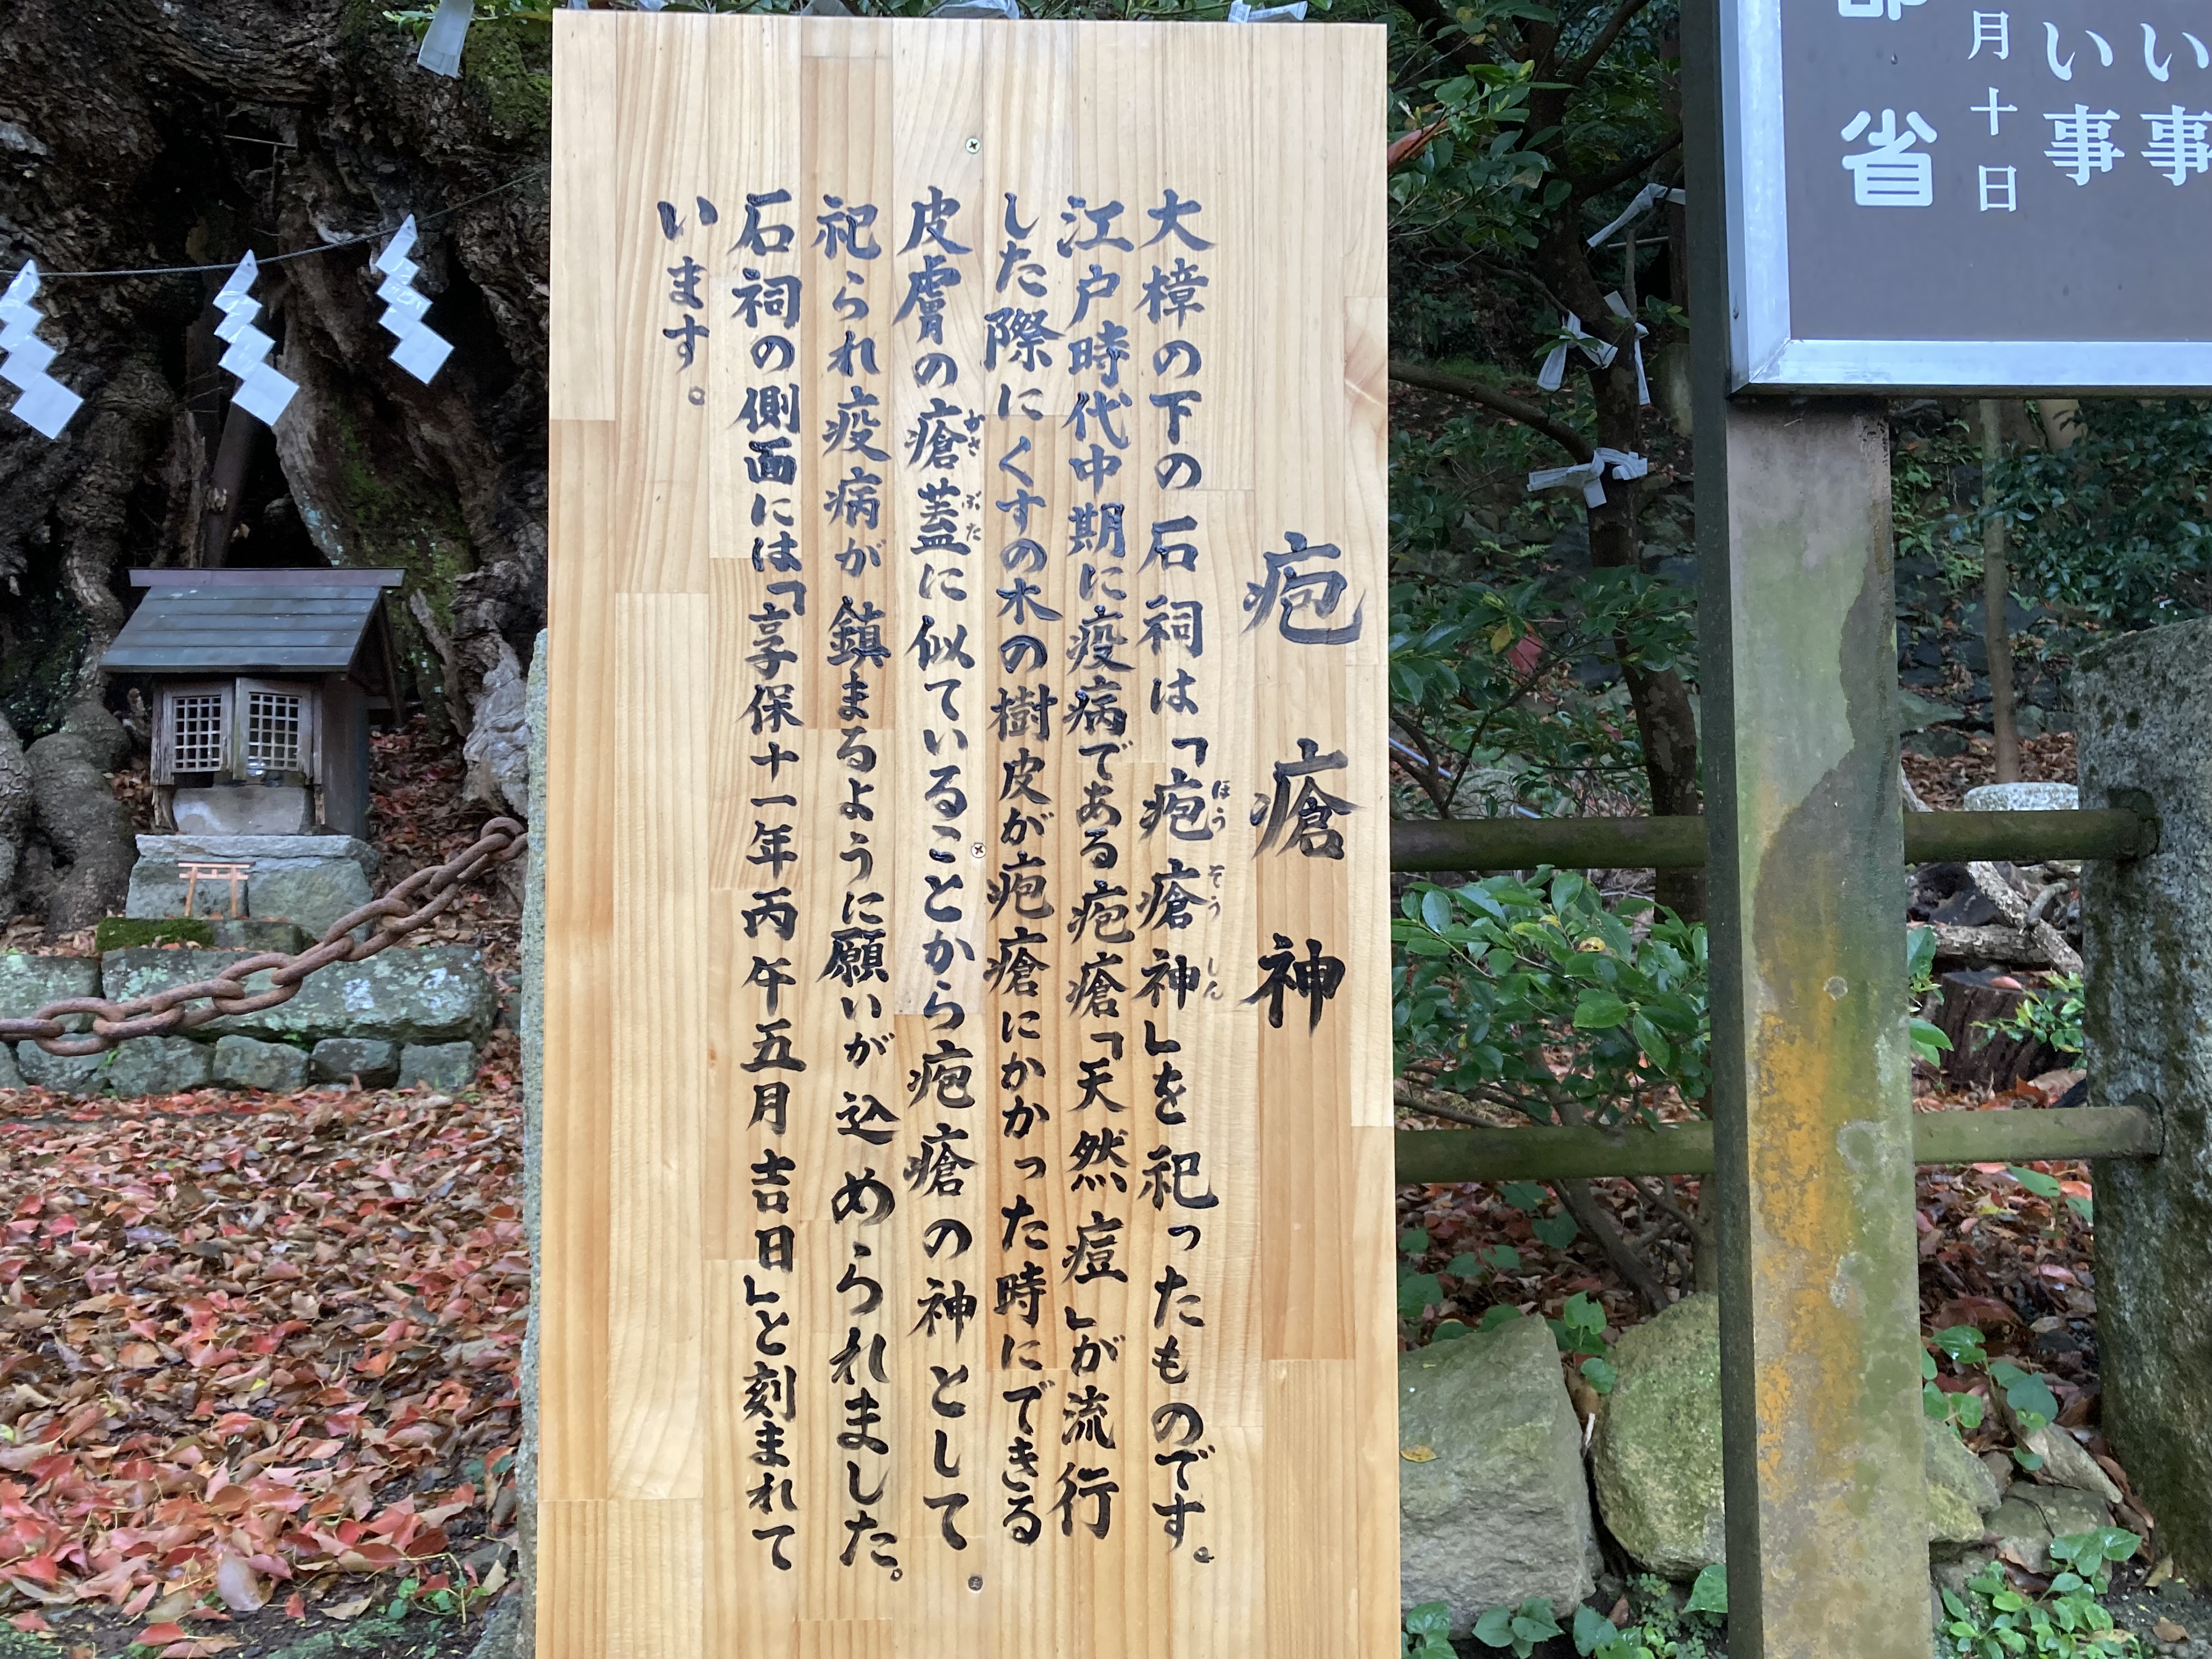 疱瘡神
大樟の下の石祠は「疱瘡神」を祀ったものです。
ほうそうしん
江戸時代中期に疫病である疱瘡「天然痘」が流行
した際にくすの木の樹皮が疱瘡にかかった時にできる
皮膚の瘡蓋に似ていることから疱瘡の神として
かさぶた
祀られ疫病が鎮まるように願いが込められました。
石祠の側面には「享保十一年丙午五月吉日」と刻まれて
います。
い事
い事
月十日
省